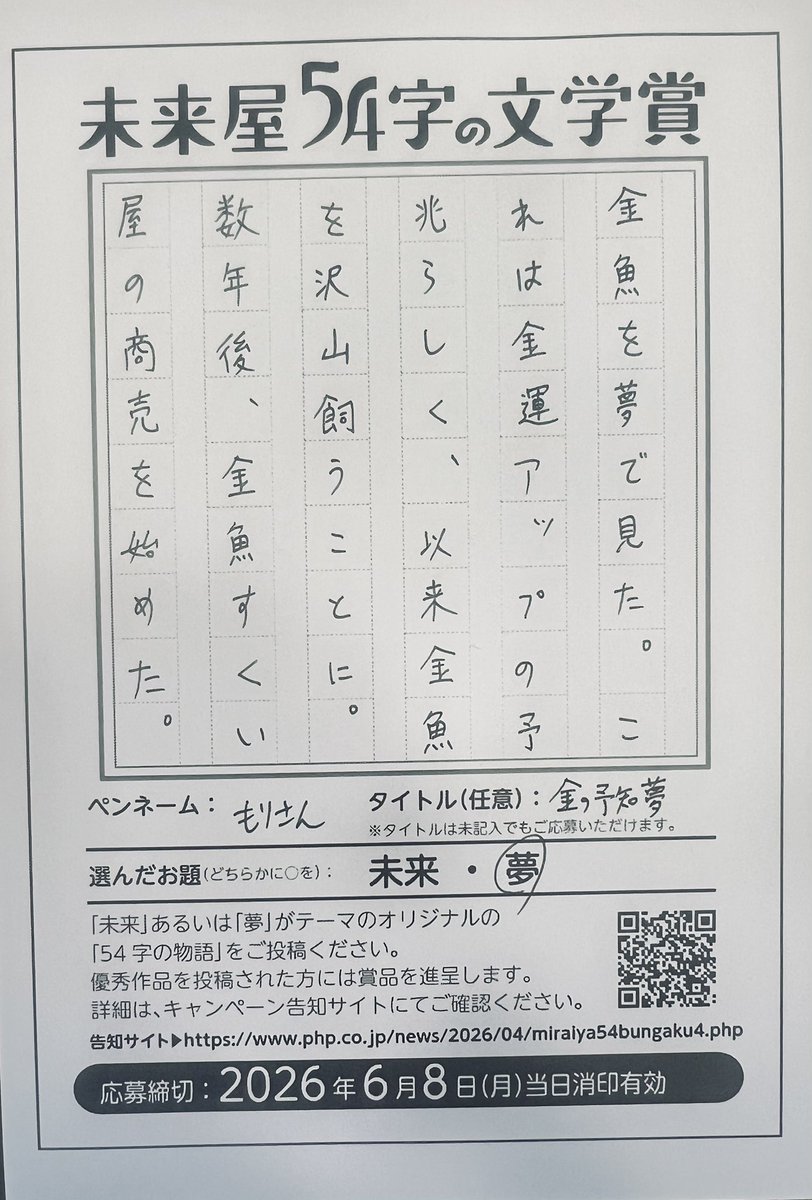 未来屋54字の文学賞
金魚を夢で見た。こ
れは金運アップの予
兆らしく、以来金魚
を沢山飼うことに。
数年後、金魚すくい
屋の商売を始めた。
ペンネーム：もりさん
タイトル(任意)：金の予知夢
※タイトルは未記入でもご応募いただけます。
選んだお題(どちらかに○を)：未来・夢
「未来」あるいは「夢」がテーマのオリジナルの
「54字の物語」をご投稿ください。
優秀作品を投稿された方には賞品を進呈します。
詳細は、キャンペーン告知サイトにてご確認ください。
告知サイト▶https://www.php.co.jp/news/2026/04/miraiya54bungaku4.php
応募締切：2026年6月8日(月)当日消印有効